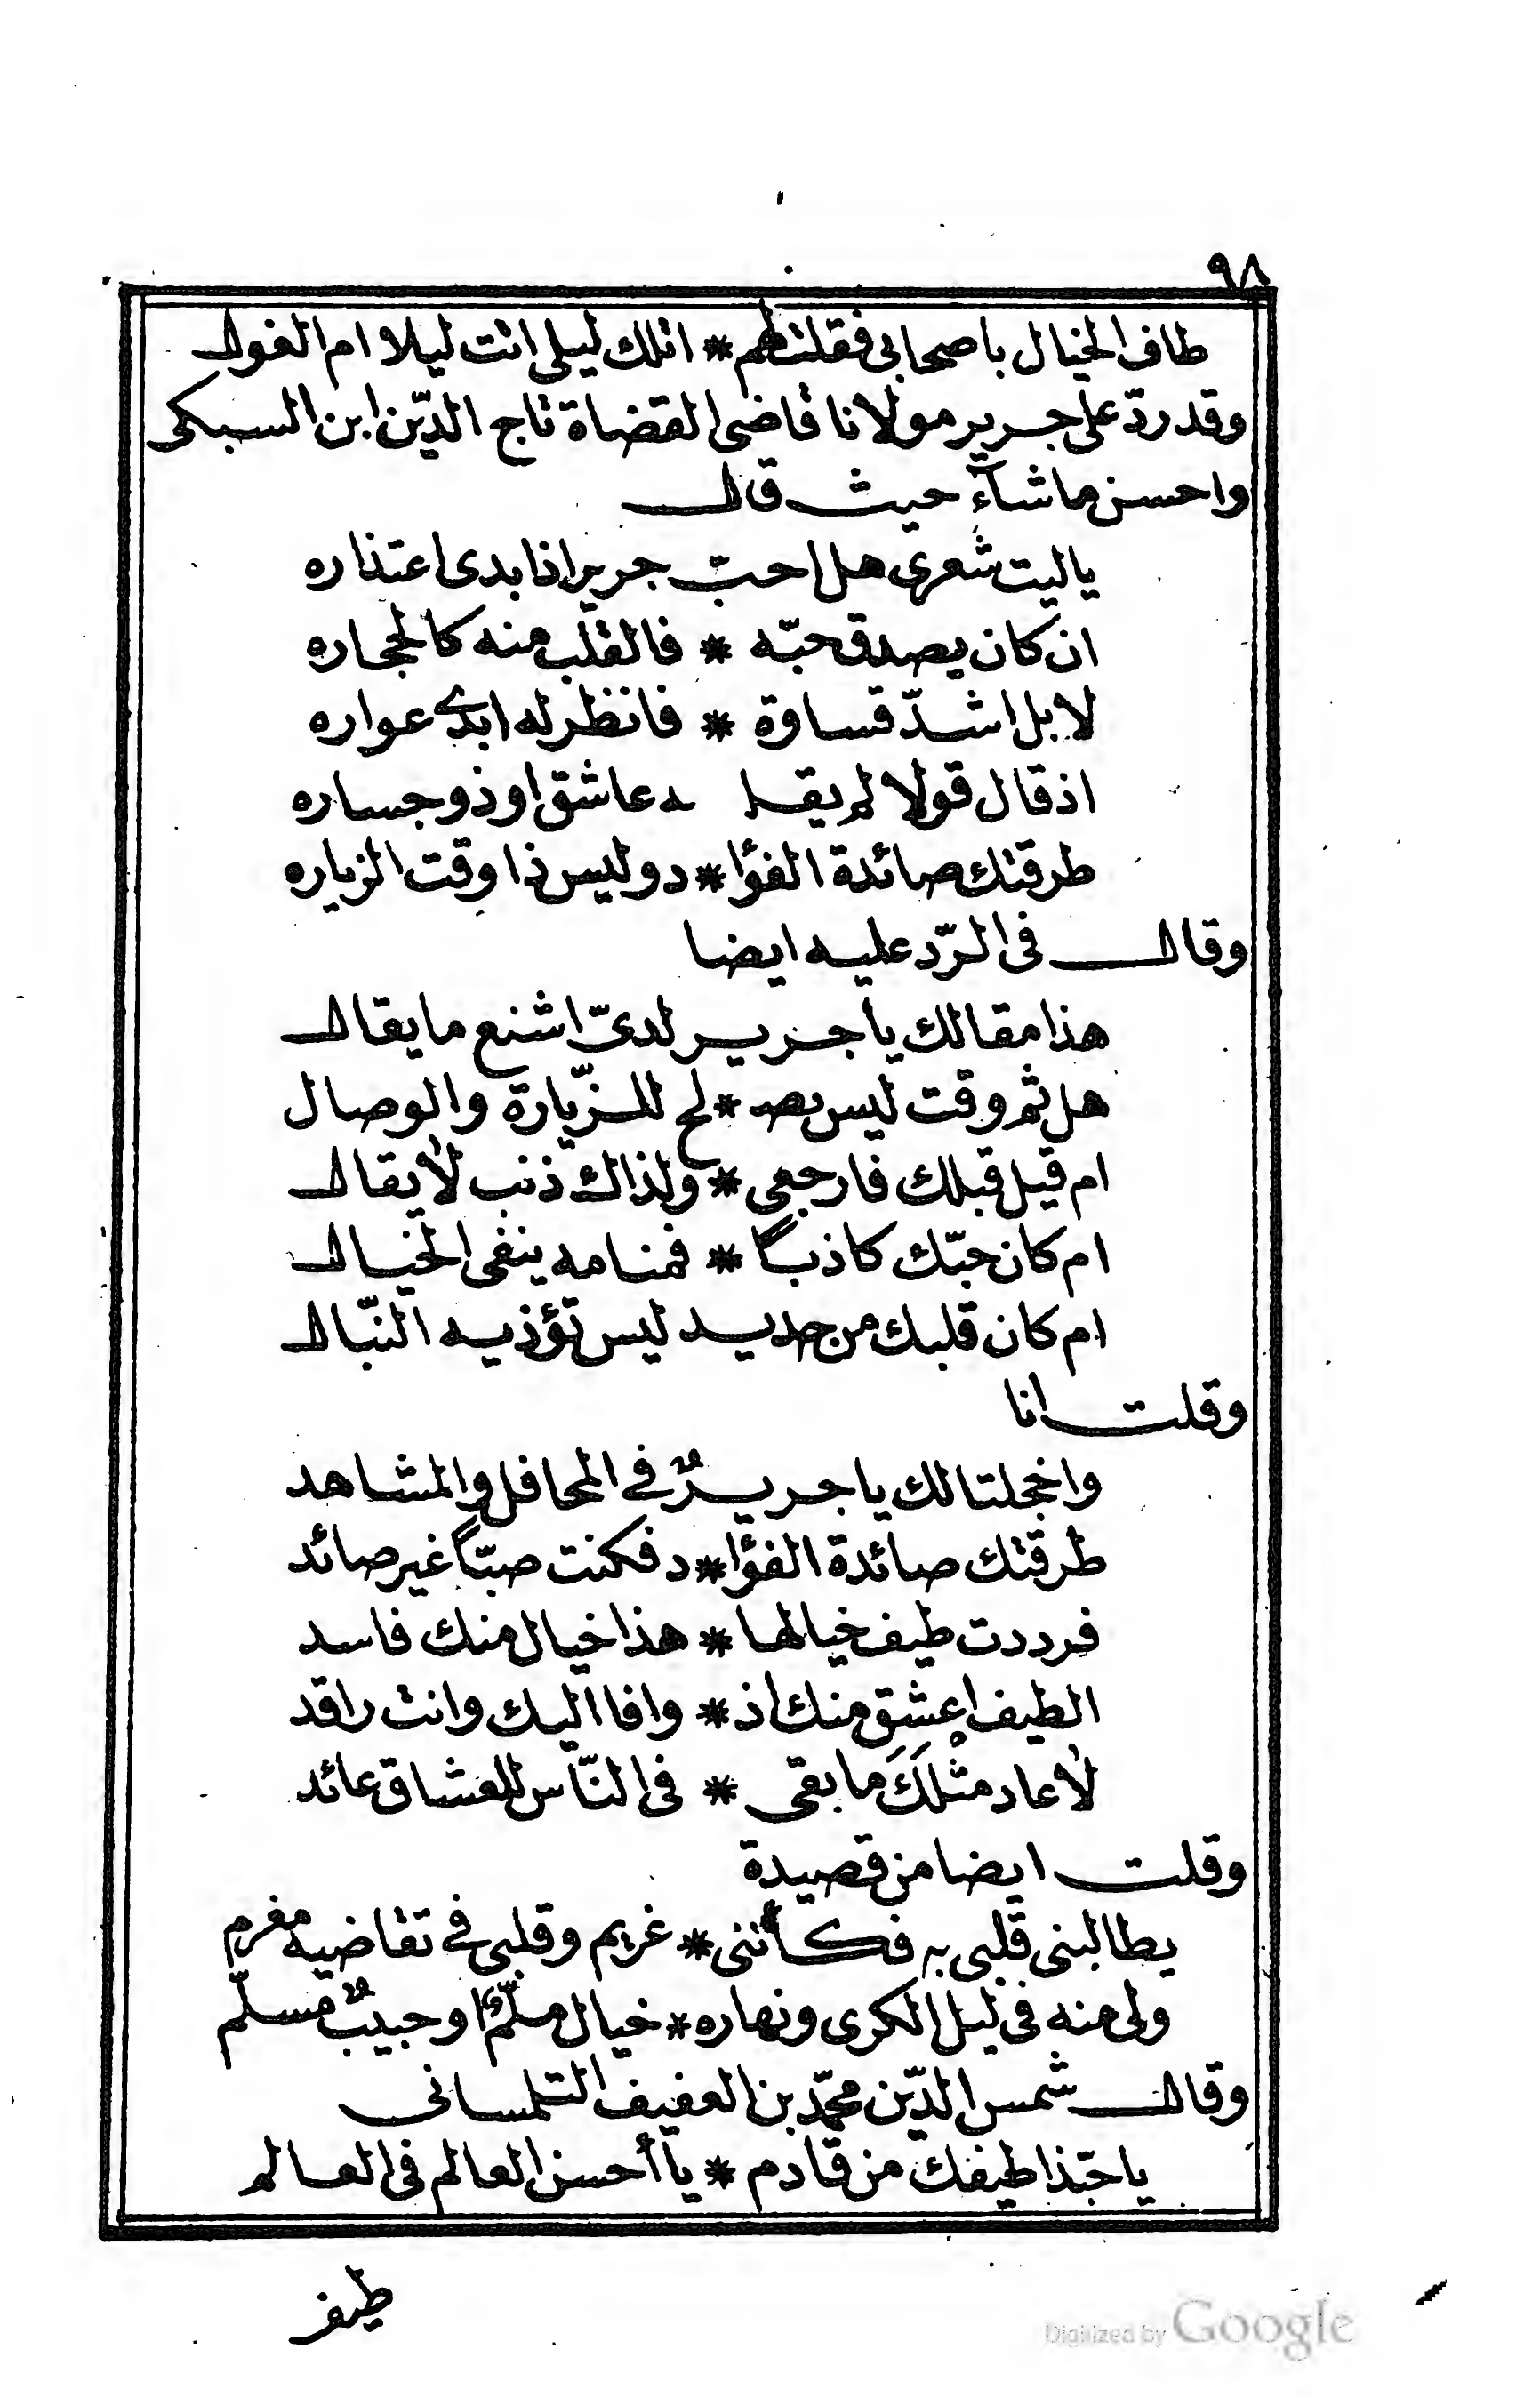 ٩٨
طاف الخيال باصحابى فقلت لهم * اتلك ليلى اتت ليلا ام الغول
وقد ردّ على جرير مولانا قاضى القضاة تاج الدّين ابن السبكى
واحسن ما شآء حيث قال
ياليت شعرى هل احبّ جرير اذا بدى اعتذاره
ان كان يصدق حبّه * فالقلب منه كالحجاره
لا بل اشدّ قساوة * فانظر له ابدى عواره
اذ قال قولا لم يقلـ ـه عاشق او ذو جساره
طرقتك صائدة الفؤا * د وليس ذا وقت الزياره
وقال فى الرّد عليه ايضا
هذا مقالك يا جرير لدىّ اشنع ما يقال
هل ثم وقت ليس يصـ * ـلح للزّيارة والوصال
ام قيل قبلك فارجعى * ولذاك ذنب لا يقال
ام كان حبّك كاذبًا * فمنامه ينفى الخيال
ام كان قلبك من حديد ليس تؤذيه النّبال
وقلت انا
واخجلتا لك يا جريرٌ فى المحافل والمشاهد
طرقتك صائدة الفؤا * د فكنت صبّاً غير صائد
فرددت طيف خيالها * هذا خيال منك فاسد
الطيف اعشق منك اذ * وافا اليك وانت راقد
لا عاد مثْلَكَ ما بقى * فى النّاس للعشاق عائد
وقلت ايضا من قصيدة
يطالبنى قلبى به فكأننى * غريم وقلبى فى تقاضيه مغرم
ولى منه فى ليل الكرى ونهاره * خيال ملمٌّ او حبيبٌ مسلّم
وقال شمس الدّين محمّد بن العفيف التلمسانى
يا حبّذا طيفك من قادم * يا أحسن العالم فى العالم
طيف
Digitized by Google